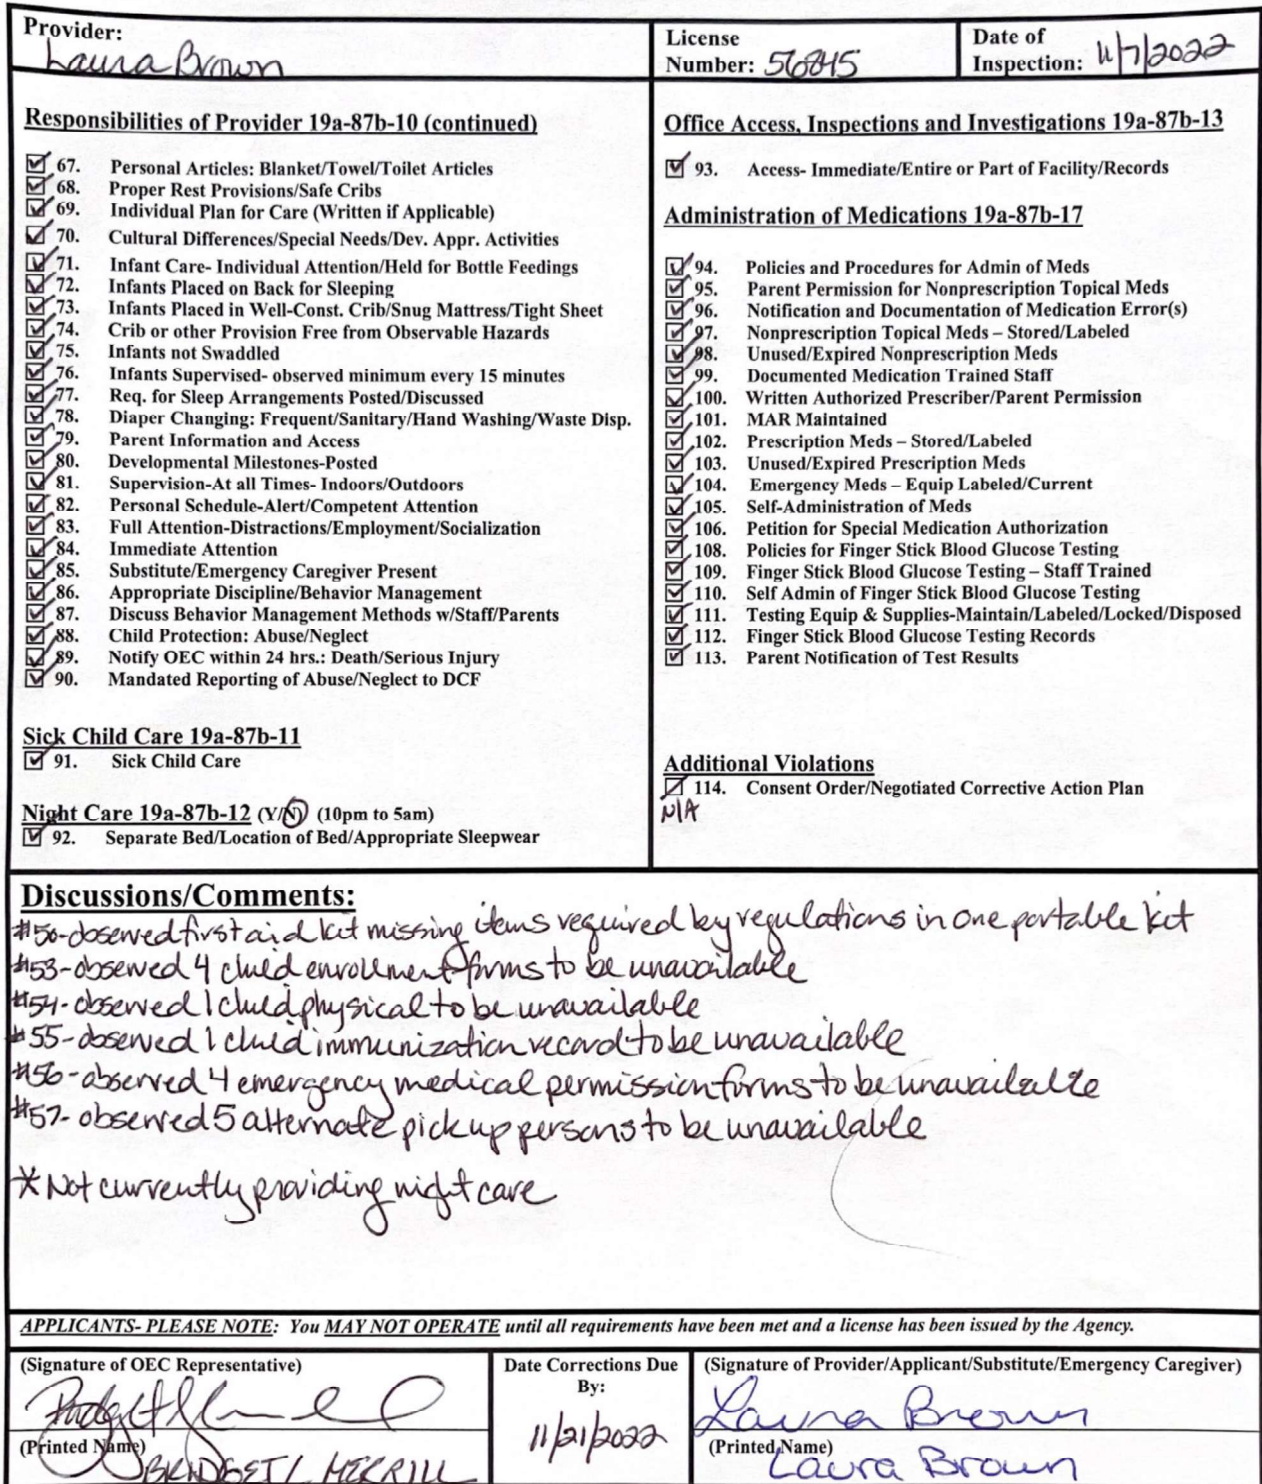 Provider:
Laura Brown
License
Number: 56845
Date of
Inspection: 11/7/2022
Responsibilities of Provider 19a-87b-10 (continued)
67. Personal Articles: Blanket/Towel/Toilet Articles
68. Proper Rest Provisions/Safe Cribs
69. Individual Plan for Care (Written if Applicable)
70. Cultural Differences/Special Needs/Dev. Appr. Activities
71. Infant Care- Individual Attention/Held for Bottle Feedings
72. Infants Placed on Back for Sleeping
73. Infants Placed in Well-Const. Crib/Snug Mattress/Tight Sheet
74. Crib or other Provision Free from Observable Hazards
75. Infants not Swaddled
76. Infants Supervised- observed minimum every 15 minutes
77. Req. for Sleep Arrangements Posted/Discussed
78. Diaper Changing: Frequent/Sanitary/Hand Washing/Waste Disp.
79. Parent Information and Access
80. Developmental Milestones-Posted
81. Supervision-At all Times- Indoors/Outdoors
82. Personal Schedule-Alert/Competent Attention
83. Full Attention-Distractions/Employment/Socialization
84. Immediate Attention
85. Substitute/Emergency Caregiver Present
86. Appropriate Discipline/Behavior Management
87. Discuss Behavior Management Methods w/Staff/Parents
88. Child Protection: Abuse/Neglect
89. Notify OEC within 24 hrs.: Death/Serious Injury
90. Mandated Reporting of Abuse/Neglect to DCF
Sick Child Care 19a-87b-11
91. Sick Child Care
Night Care 19a-87b-12 (Y/N) (10pm to 5am)
92. Separate Bed/Location of Bed/Appropriate Sleepwear
Office Access, Inspections and Investigations 19a-87b-13
93. Access- Immediate/Entire or Part of Facility/Records
Administration of Medications 19a-87b-17
94. Policies and Procedures for Admin of Meds
95. Parent Permission for Nonprescription Topical Meds
96. Notification and Documentation of Medication Error(s)
97. Nonprescription Topical Meds – Stored/Labeled
98. Unused/Expired Nonprescription Meds
99. Documented Medication Trained Staff
100. Written Authorized Prescriber/Parent Permission
101. MAR Maintained
102. Prescription Meds – Stored/Labeled
103. Unused/Expired Prescription Meds
104. Emergency Meds – Equip Labeled/Current
105. Self-Administration of Meds
106. Petition for Special Medication Authorization
108. Policies for Finger Stick Blood Glucose Testing
109. Finger Stick Blood Glucose Testing – Staff Trained
110. Self Admin of Finger Stick Blood Glucose Testing
111. Testing Equip & Supplies-Maintain/Labeled/Locked/Disposed
112. Finger Stick Blood Glucose Testing Records
113. Parent Notification of Test Results
Additional Violations
114. Consent Order/Negotiated Corrective Action Plan
N/A
Discussions/Comments:
#50-observed first aid kit missing items required by regulations in one portable kit
#53-observed 4 child enrollment forms to be unavailable
#54-observed 1 child physical to be unavailable
#55-observed 1 child immunization record to be unavailable
#56-observed 4 emergency medical permission forms to be unavailable
#57-observed 5 alternate pick up persons to be unavailable
* Not currently providing night care
APPLICANTS- PLEASE NOTE: You MAY NOT OPERATE until all requirements have been met and a license has been issued by the Agency.
(Signature of OEC Representative)
(Printed Name)
BRIDGET L MERRILL
Date Corrections Due
By:
11/21/2022
(Signature of Provider/Applicant/Substitute/Emergency Caregiver)
Laura Brown
(Printed Name)
Laura Brown